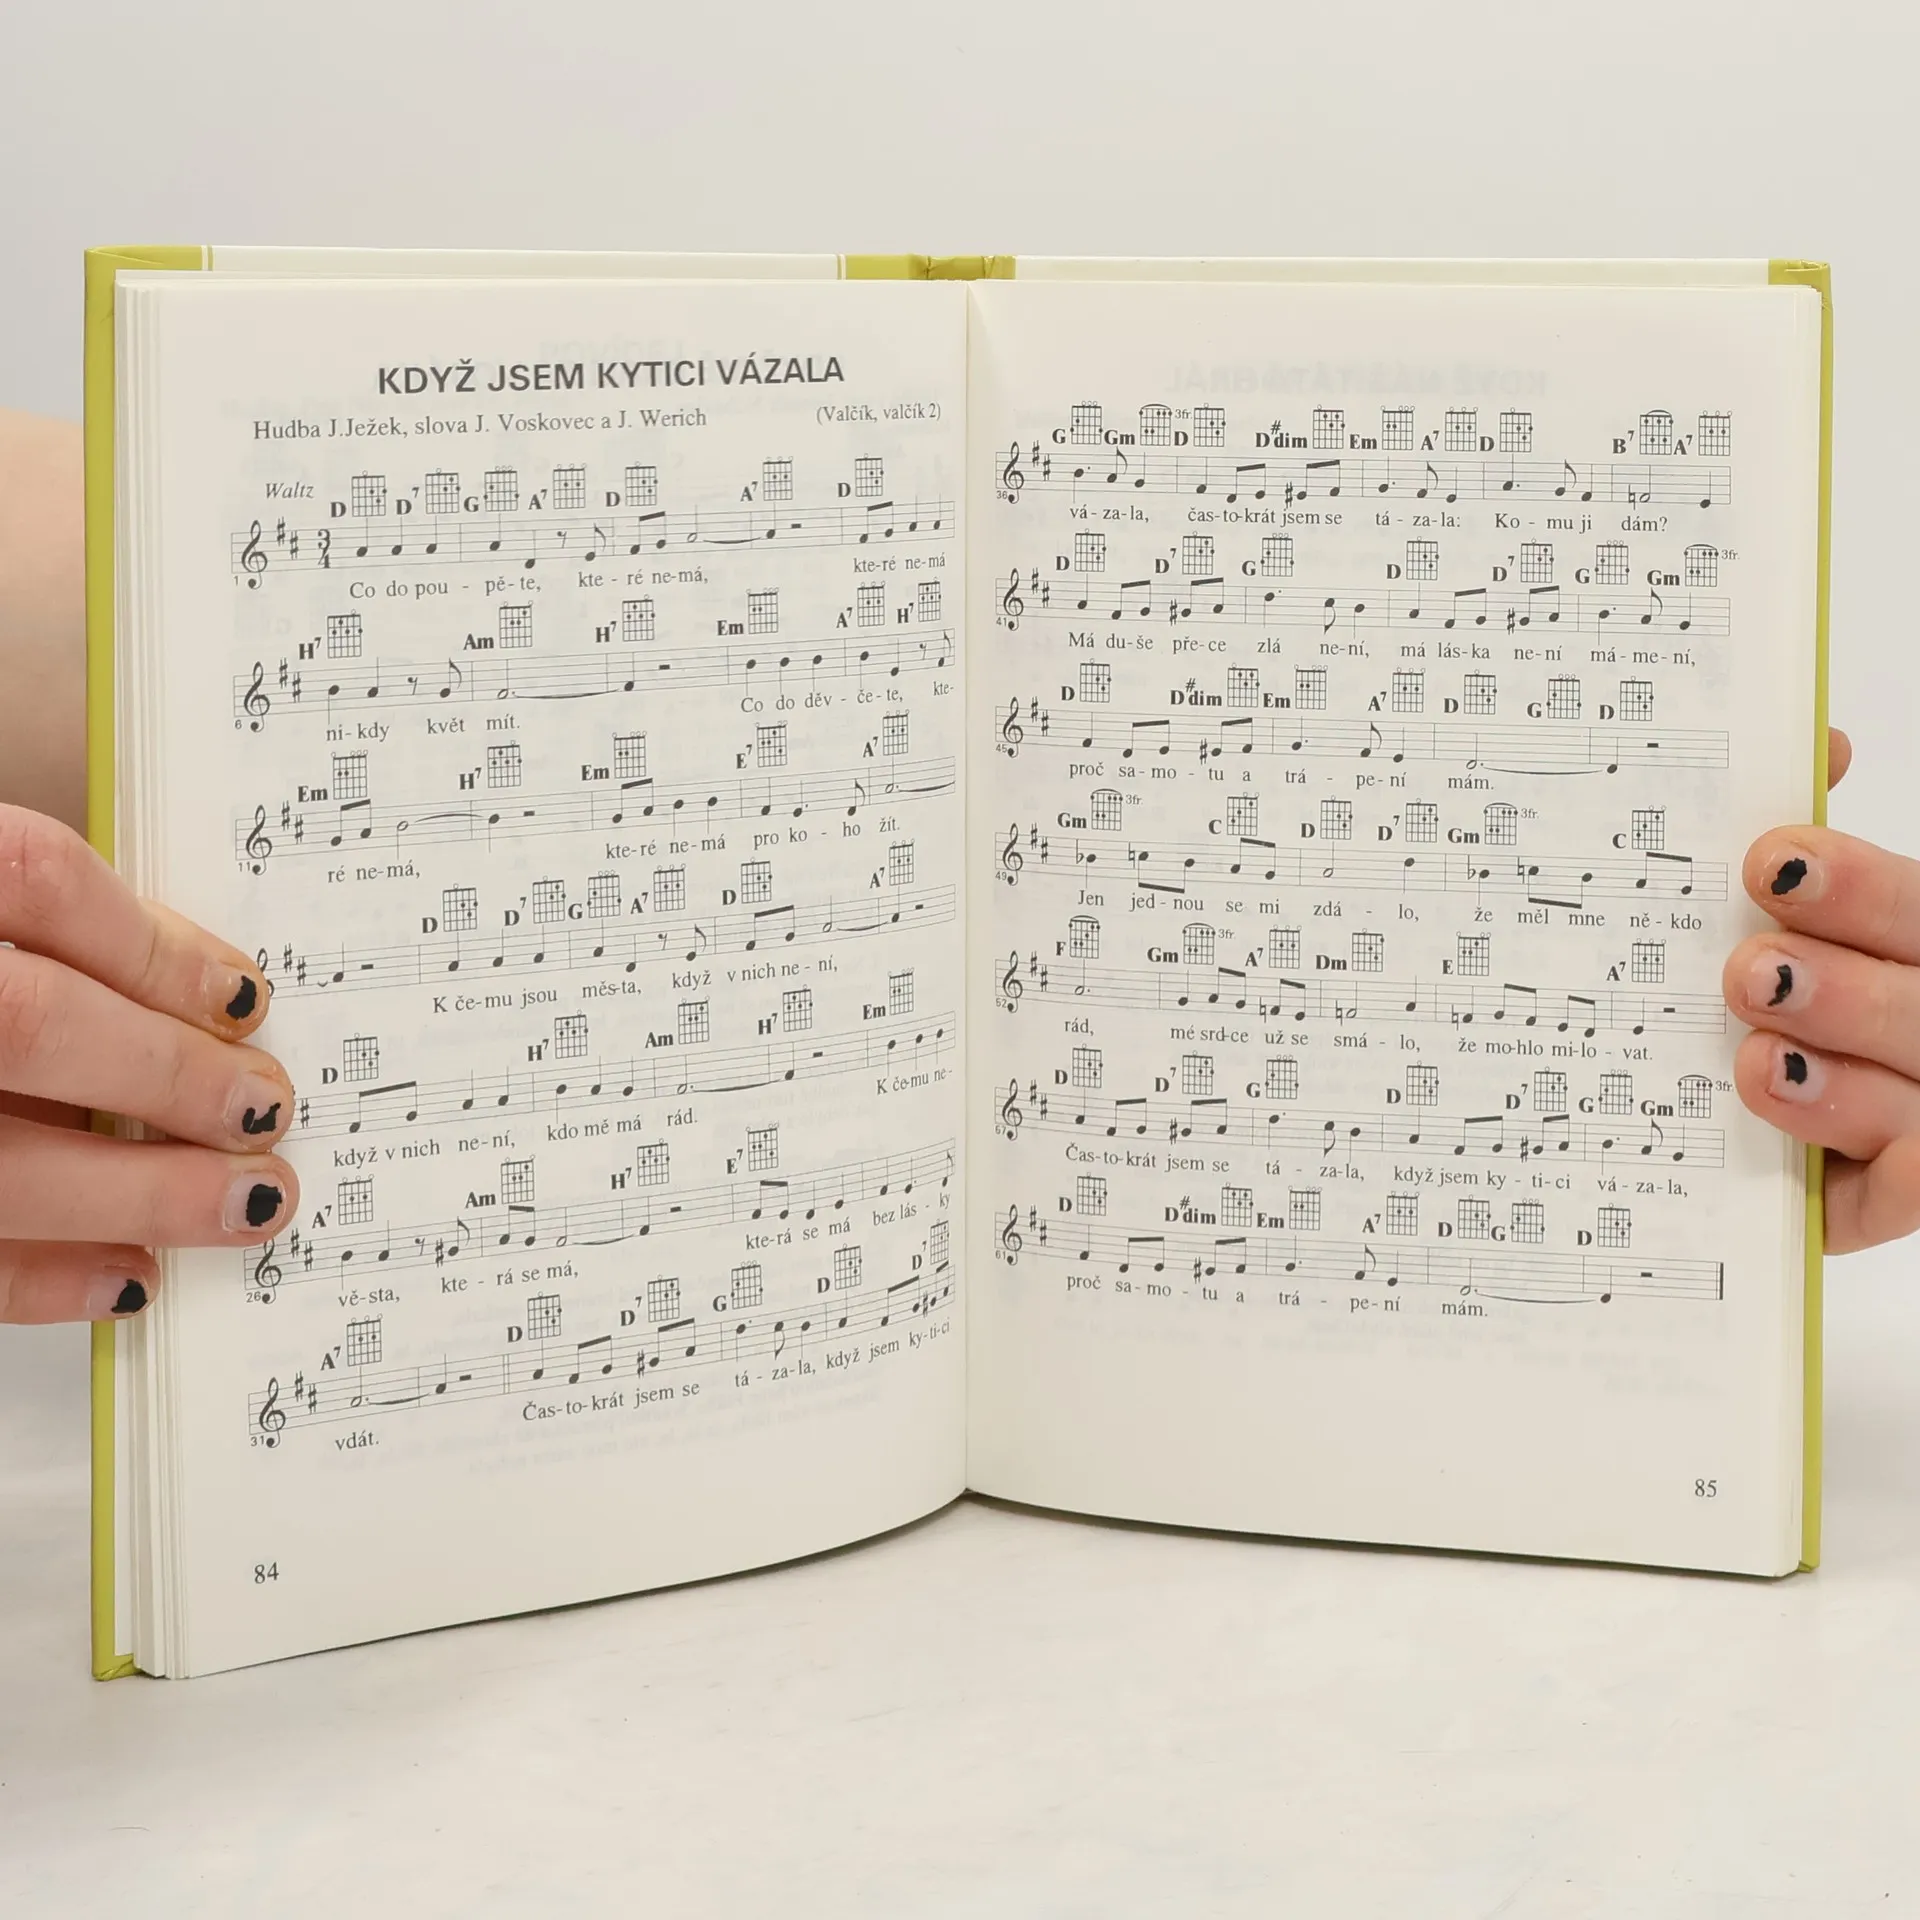 KDYŽ JSEM KYTICI VÁZALA
Hudba J.Ježek, slova J. Voskovec a J. Werich (Valčík, valčík 2)
Waltz D D7 G A7 D A7 D
3 4
1
Co do pou - pě - te, kte - ré ne-má, kte-ré ne-má
H7 Am H7 Em A7 H7
6
ni - kdy květ mít. Co do děv - če - te, kte-
Em H7 Em E7 A7
11
ré ne-má, kte-ré ne-má pro ko - ho žít.
D D7 G A7 D A7
K če-mu jsou měs-ta, když v nich ne - ní,
D H7 Am H7 Em
když v nich ne-ní, kdo mě má rád. K če-mu ne-
A7 Am H7 E7
26
vě-sta, kte - rá se má, kte-rá se má bez lás - ky
A7 D D7 G D D7
31
vdát. Čas-to-krát jsem se tá - za-la, když jsem ky-ti-ci
84
G Gm 3fr. D D#dim Em A7 D B7 A7
36
vá - za-la, čas-to-krát jsem se tá - za-la: Ko - mu ji dám?
D D7 G D D7 G Gm 3fr.
41
Má du-še pře-ce zlá ne-ní, má lás-ka ne-ní má-me-ní,
D D#dim Em A7 D G D
45
proč sa-mo - tu a trá - pe-ní mám.
Gm 3fr. C D D7 Gm 3fr. C
49
Jen jed-nou se mi zdá - lo, že měl mne ně - kdo
F Gm 3fr. A7 Dm E A7
52
rád, mé srd-ce už se smá - lo, že mo-hlo mi-lo - vat.
D D7 G D D7 G Gm 3fr.
57
Čas-to-krát jsem se tá - za-la, když jsem ky - ti-ci vá - za-la,
D D#dim Em A7 D G D
61
proč sa-mo - tu a trá - pe-ní mám.
85